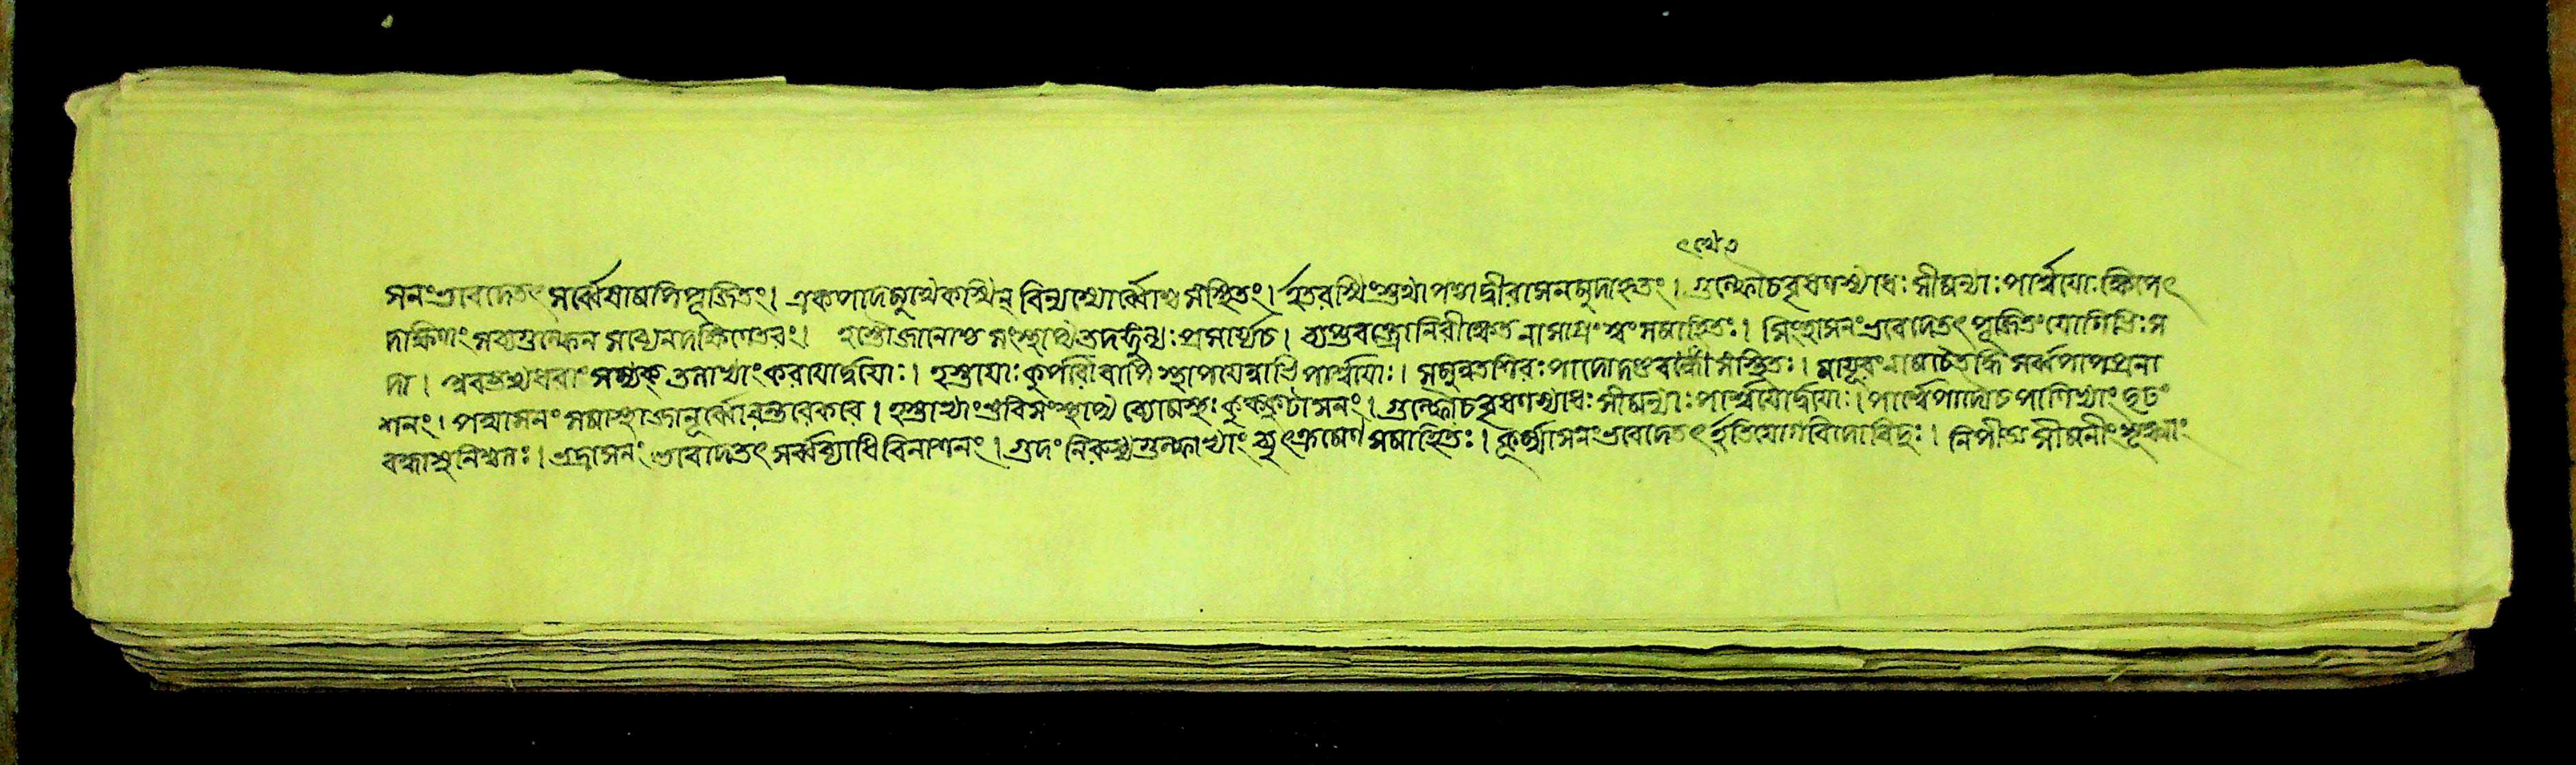 ৎথেত
সনংভবেদেতৎ সর্ব্বেষামপিপূজিতং। একপাদমথৈকস্মিন্ বিন্যস্যোর্ব্বোশ্চ সংস্থিতং। ইতরস্মিংস্তথাপশ্চাদ্বীরাসনমুদাহৃতং। গুল্ফৌচবৃষণস্যাধঃ সীমন্যাঃ পার্শ্বয়োঃ ক্ষিপেৎ
দক্ষিণং সব্যগুল্ফেন সব্যেনদক্ষিণেতরং। হস্তৌজান্বোশ্চ সংস্থাপ্য প্রসার্য্যচ। ব্যাত্তবক্ত্রোনিরীক্ষেত নাসাগ্রং সমাহিতঃ। সিংহাসনংভবেদেতৎ পূজিতংযোগিভিঃস
দা। সম্যক্ করয়োর্দ্বয়োঃ। হস্তয়োঃ কূর্পরৌ স্থাপয়েন্নাভিপার্শ্বয়োঃ। সমুন্নতশিরঃপাদো সংস্থিতঃ। মায়ূরং সর্ব্বপাপপ্রণা
শনং। পদ্মাসনং সমাস্থায়জানূর্ব্বোরন্তরেকরৌ। হস্তাভ্যাং সংস্থাপ্য ব্যোমস্থঃ কুক্কুটাসনং। গুল্ফৌচবৃষণস্যাধঃ সীমন্যাঃ পার্শ্বয়োর্দ্বয়োঃ। পার্শ্বপাদৌচপাণিভ্যাং দৃঢং
বদ্ধাসুনিশ্চলঃ। ভদ্রাসনং ভবেদেতৎ সর্ব্বব্যাধিবিনাশনং। গুদং নিরুধ্যগুল্ফাভ্যাং ব্যুৎক্রমেণ সমাহিতঃ। কূর্ম্মাসনংভবেদেতৎ ইতিযোগবিদোবিদুঃ। নিপীড্য সীমনীং সূক্ষ্মাং